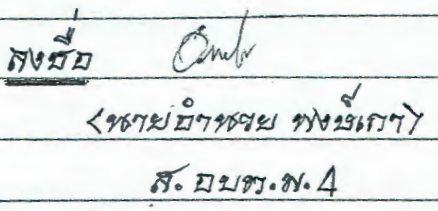 ลงชื่อ
(นายอำนวย พงษ์เภา)
ส.อบต.ม.4